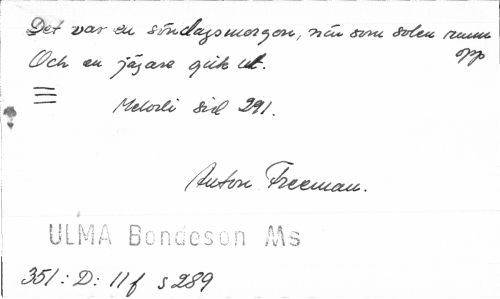 Det var en söndagsmorgon, när som solen rann opp
Och en jägare gick ut.
Melodi sid 291.
Anton Freeman.
ULMA Bondeson Ms
351:D: 11f s 289